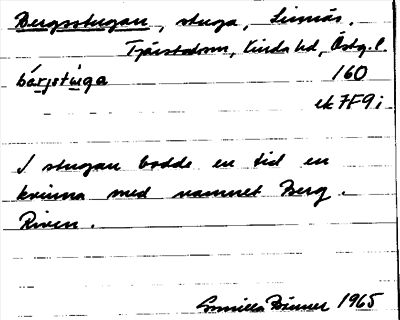 Bergsstugan, stuga, Linnäs.
Tjärstadsm, Kinda hd, Östg. l.
bárjstùga 160
ek 7F9i
I stugan bodde en tid en
kvinna med namnet Berg.
Riven.
Gunilla 1965